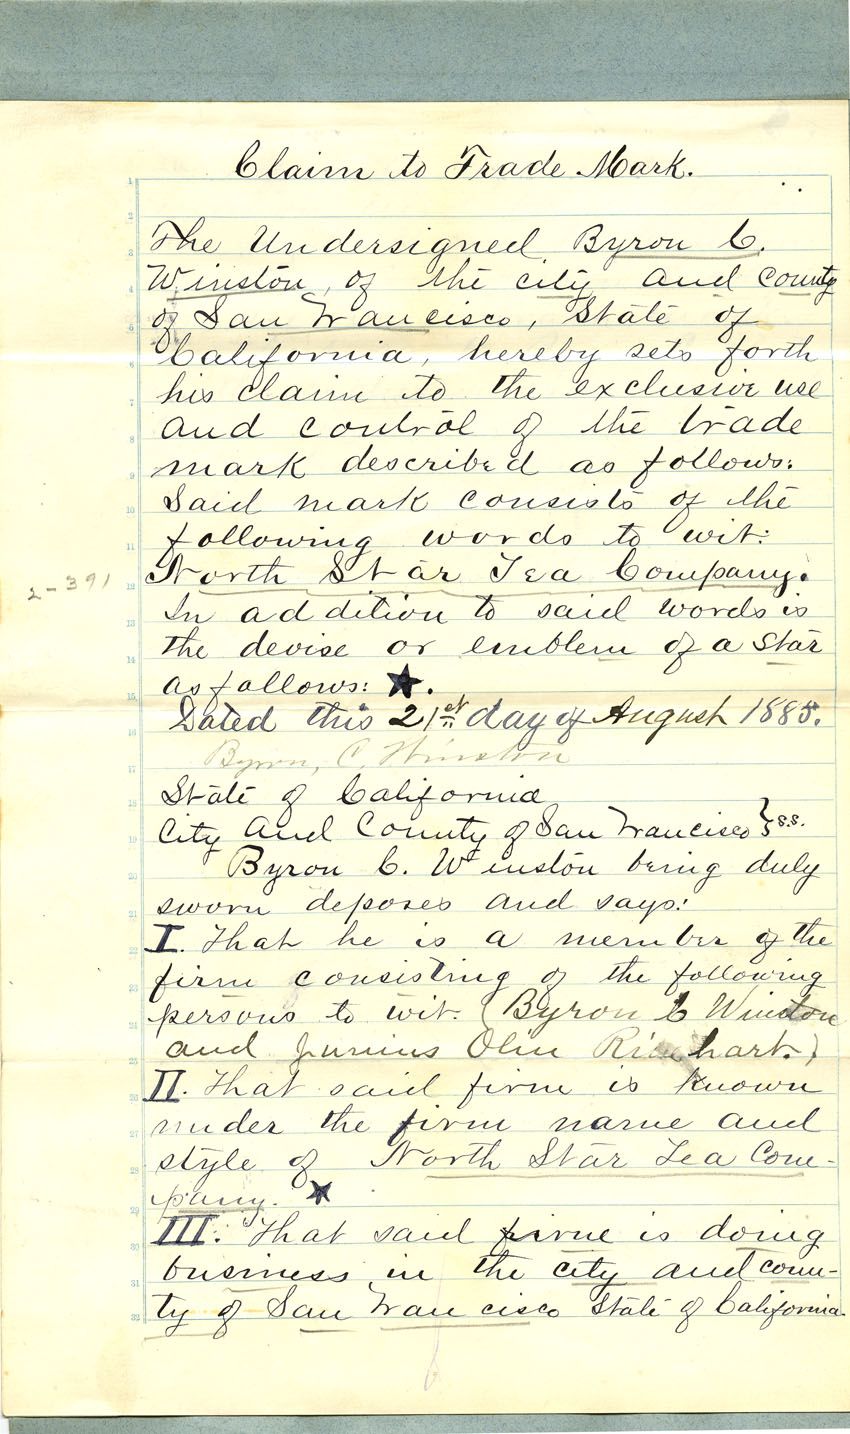 Claim to Trade Mark.
The Undersigned Byron C.
Winston, of the city and county
of San Francisco, State of
California, hereby sets forth
his claim to the exclusive use
and control of the trade
mark described as follows:
Said mark consists of the
following words to wit:
2-391
North Star Tea Company.
In addition to said words is
the devise or emblem of a Star
as follows: ★.
Dated this 21st day of August 1885.
Byron, C. Winston
State of California
City And County of San Francisco } s.s.
Byron C. Winston being duly
sworn deposes and says:
I. That he is a member of the
firm consisting of the following
persons to wit. (Byron C Winston
and Junius Olin Rinehart.)
II. That said firm is known
under the firm name and
style of North Star Tea Com-
pany. ★
III. That said firm is doing
business in the city and coun-
ty of San Francisco State of California.